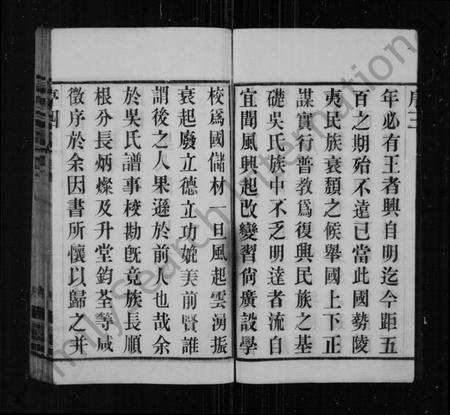 序三
年必有王者興自明迄今距五
百之期殆不遠已當此國勢陵
夷民族衰頹之候舉國上下正
謀實行普教為復興民族之基
礎吳氏族中不乏明達者流自
宜聞風興起改變習尚廣設學
校為國儲材一旦風起雲湧振
衰起廢立德立功媲美前賢誰
謂後之人果遜於前人也哉余
於吳氏譜事校勘既竟族長順
根分長炳燦及升堂鈞荃等咸
徵序於余因書所懷以歸之并